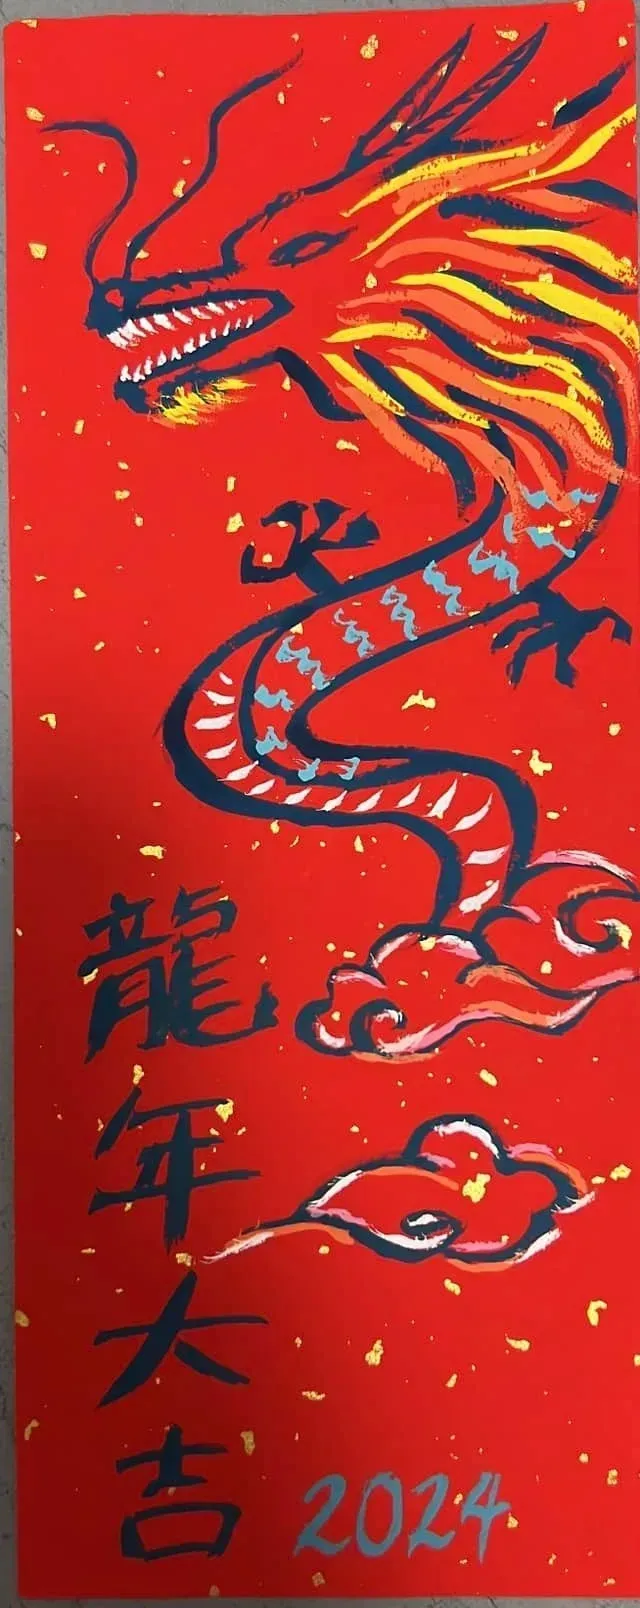 龍年大吉
2024